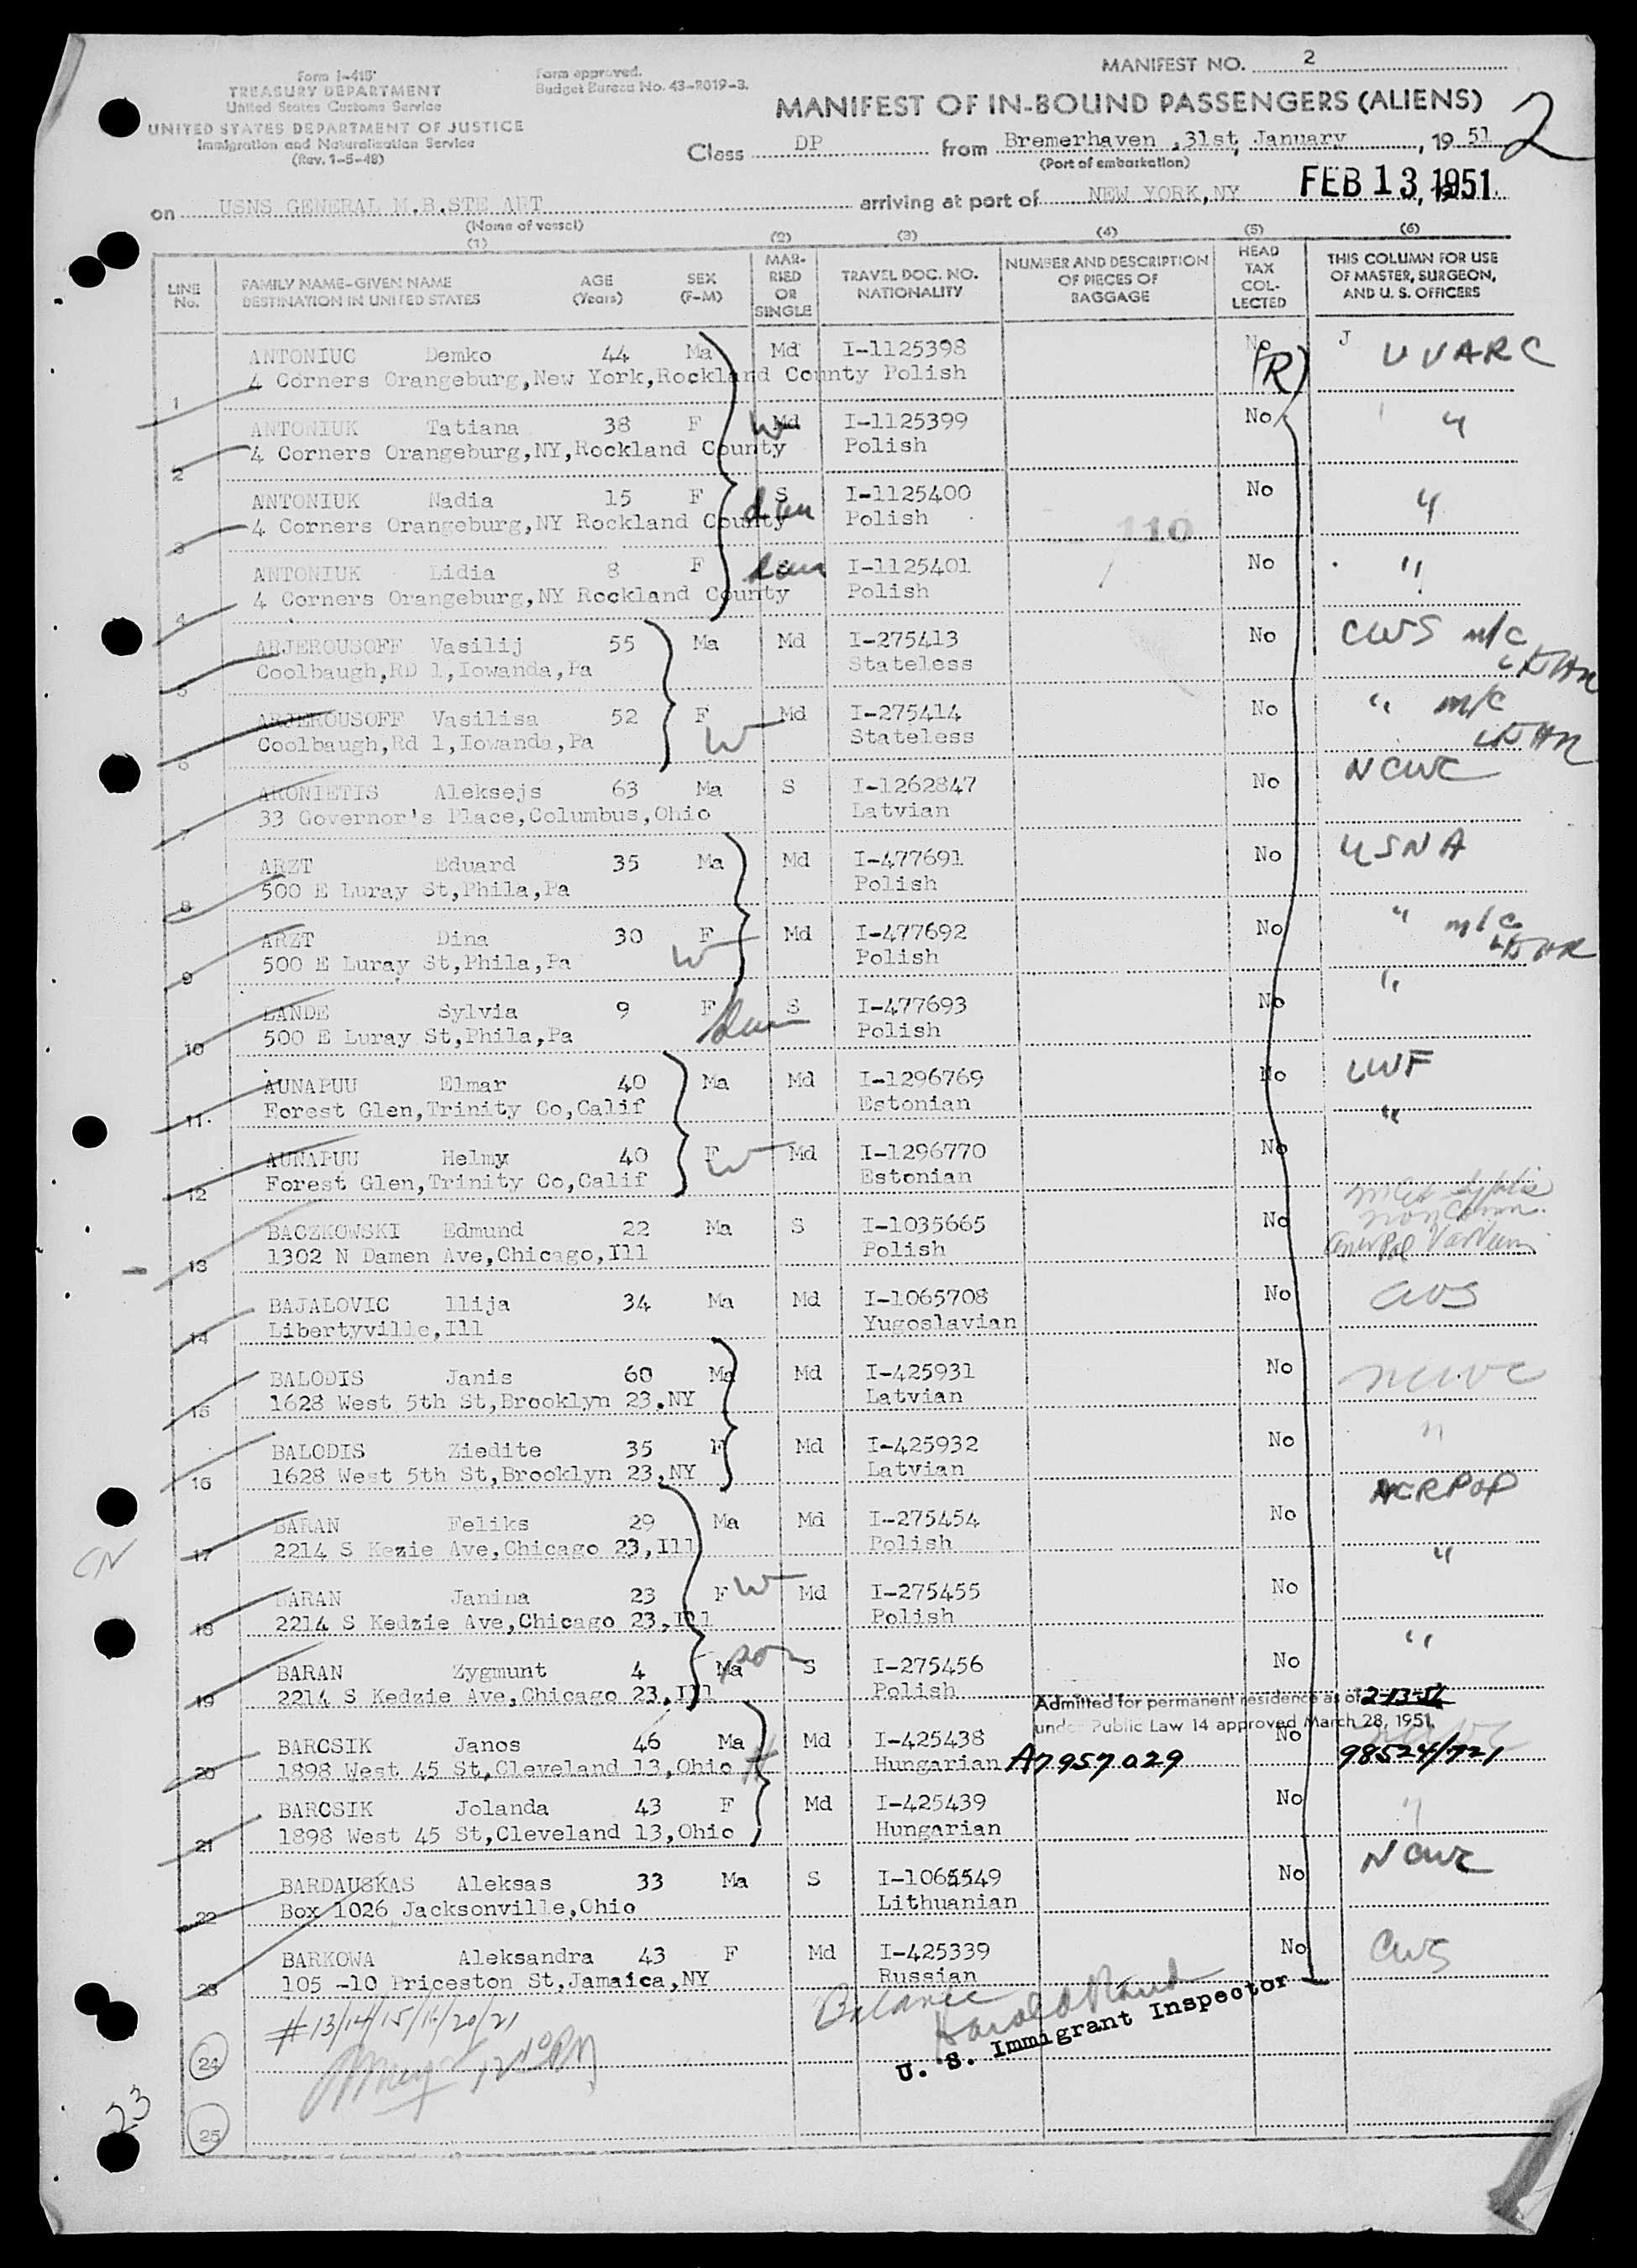 MANIFEST NO. 2
Form I-415
TREASURY DEPARTMENT
United States Customs Service
UNITED STATES DEPARTMENT OF JUSTICE
Immigration and Naturalization Service
(Rev. 1-5-48)
Form approved.
Budget Bureau No. 43-R019-3.
MANIFEST OF IN-BOUND PASSENGERS (ALIENS)
2
Class DP from Bremerhaven ,31st, January, 19 51
(Port of embarkation)
on USNS GENERAL M.B.STE ART arriving at port of NEW YORK,NY FEB 13, 1951
(Name of vessel)
(1) (2) (3) (4) (5) (6)
LINE No. FAMILY NAME-GIVEN NAME DESTINATION IN UNITED STATES AGE (Years) SEX (F-M) MARRIED OR SINGLE TRAVEL DOC. NO. NATIONALITY NUMBER AND DESCRIPTION OF PIECES OF BAGGAGE HEAD TAX COLLECTED THIS COLUMN FOR USE OF MASTER, SURGEON, AND U. S. OFFICERS
1 ANTONIUC Demko 44 Ma Md I-1125398 No (R) J UUARC
4 Corners Orangeburg,New York,Rockland County Polish
2 ANTONIUK Tatiana 38 F W Md I-1125399 No "
4 Corners Orangeburg,NY,Rockland County Polish
3 ANTONIUK Nadia 15 F S I-1125400 No "
4 Corners Orangeburg,NY Rockland County Polish 110
4 ANTONIUK Lidia 8 F I-1125401 No "
4 Corners Orangeburg,NY Rockland County Polish
5 ARJEROUSOFF Vasilij 55 Ma Md I-275413 No CWS m/c
Coolbaugh,RD 1,Iowanda,Pa Stateless
6 ARJEROUSOFF Vasilisa 52 F W Md I-275414 No " m/c
Coolbaugh,Rd 1,Iowanda,Pa Stateless
7 ARONIETIS Aleksejs 63 Ma S I-1262847 No NCWC
33 Governor's Place,Columbus,Ohio Latvian
8 ARZT Eduard 35 Ma Md I-477691 No USNA
500 E Luray St,Phila,Pa Polish
9 ARZT Dina 30 F W Md I-477692 No " m/c
500 E Luray St,Phila,Pa Polish
10 LANDE Sylvia 9 F S I-477693 No "
500 E Luray St,Phila,Pa Polish
11. AUNAPUU Elmar 40 Ma Md I-1296769 No LWF
Forest Glen,Trinity Co,Calif Estonian "
12 AUNAPUU Helmy 40 F W Md I-1296770 No
Forest Glen,Trinity Co,Calif Estonian
13 BACZKOWSKI Edmund 22 Ma S I-1035665 No
1302 N Damen Ave,Chicago,Ill Polish
14 BAJALOVIC llija 34 Ma Md I-1065708 No CWS
Libertyville,Ill Yugoslavian
15 BALODIS Janis 60 Ma Md I-425931 No NCWC
1628 West 5th St,Brooklyn 23.NY Latvian
16 BALODIS Ziedite 35 F Md I-425932 No "
1628 West 5th St,Brooklyn 23,NY Latvian
17 BARAN Feliks 29 Ma Md I-275454 No
2214 S Kezie Ave,Chicago 23,Ill Polish "
18 BARAN Janina 23 F W Md I-275455 No
2214 S Kedzie Ave,Chicago 23,Ill Polish
19 BARAN Zygmunt 4 Ma son S I-275456 No "
2214 S Kedzie Ave,Chicago 23,Ill Polish
Admitted for permanent residence as of 2-13-51
under Public Law 14 approved March 28, 1951.
20 BARCSIK Janos 46 Ma Md I-425438 No
1898 West 45 St,Cleveland 13,Ohio Hungarian A7957029 98524/721
21 BARCSIK Jolanda 43 F Md I-425439 No "
1898 West 45 St,Cleveland 13,Ohio Hungarian
22 BARDAUSKAS Aleksas 33 Ma S I-1065549 No NCWC
Box 1026 Jacksonville,Ohio Lithuanian
23 BARKOWA Aleksandra 43 F Md I-425339 No CWS
105 -10 Priceston St,Jamaica,NY Russian
#13/14/15/16/20/21
Balance
U. S. Immigrant Inspector
24
25
23
CN